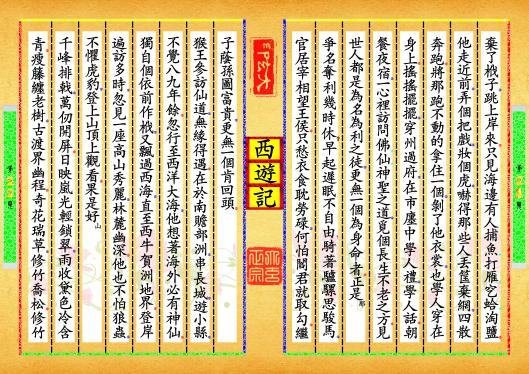 棄了栰子跳上岸來只見海邊有人捕魚打雁穵蛤淘鹽
他走近前弄個把戲妝個虎嚇得那些人丟筐棄網四散
奔跑將那跑不動的拿住一個剝了他衣裳也學人穿在
身上搖搖擺擺穿州過府在市廛中學人禮學人話朝
餐夜宿一心裡訪問佛仙神聖之道覓個長生不老之方見
世人都是為名為利之徒更無一個為身命者正是那
爭名奪利幾時休早起遲眠不自由騎著驢騾思駿馬
官居宰相望王侯只愁衣食耽勞碌何怕閻君就取勾繼
西遊記
子蔭孫圖富貴更無一個肯回頭
猴王參訪仙道無緣得遇在於南贍部洲串長城遊小縣
不覺八九年餘忽行至西洋大海他想著海外必有神仙
獨自個依前作栰又飄過西海直至西牛賀洲地界登岸
遍訪多時忽見一座高山秀麗林麓幽深他也不怕狼蟲
不懼虎豹登上山頂上觀看果是好山
千峰排戟萬仞開屏日映嵐光輕鎖翠雨收黛色冷含
青瘦藤纏老樹古渡界幽程奇花瑞草修竹喬松修竹